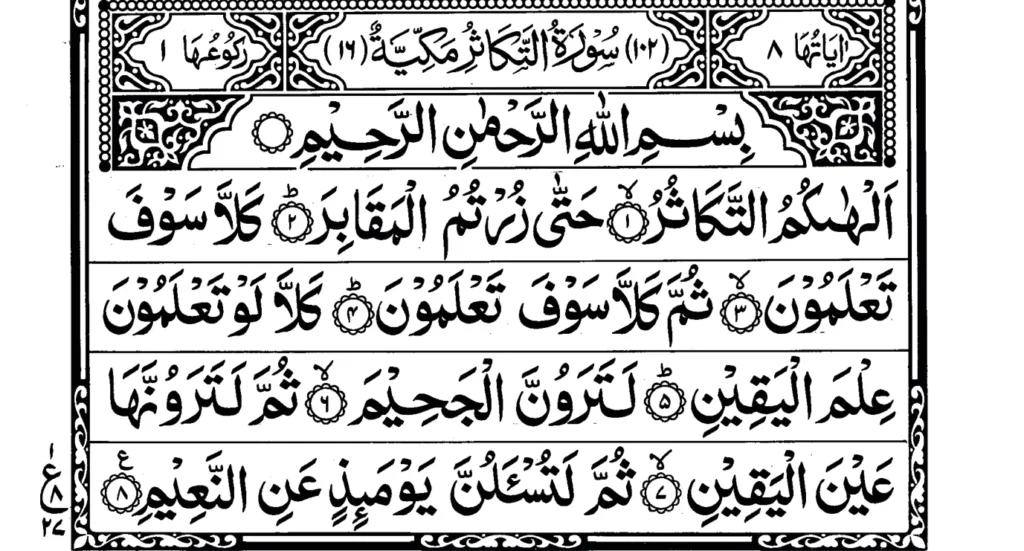 اٰيَاتُهَا ٨ (١٠٢) سُوْرَةُ التَّكَاثُرِ مَكِّيَّةٌ (١٦) رُكُوْعُهَا ١
بِسْمِ اللّٰهِ الرَّحْمٰنِ الرَّحِيْمِ ۝
اَلْهٰىكُمُ التَّكَاثُرُ ۙ﴿١﴾ حَتّٰى زُرْتُمُ الْمَقَابِرَ ؕ﴿٢﴾ كَلَّا سَوْفَ
تَعْلَمُوْنَ ۙ﴿٣﴾ ثُمَّ كَلَّا سَوْفَ تَعْلَمُوْنَ ؕ﴿۴﴾ كَلَّا لَوْ تَعْلَمُوْنَ
عِلْمَ الْيَقِيْنِ ؕ﴿۵﴾ لَتَرَوُنَّ الْجَحِيْمَ ۙ﴿٦﴾ ثُمَّ لَتَرَوُنَّهَا
عَيْنَ الْيَقِيْنِ ۙ﴿٧﴾ ثُمَّ لَتُسْـَٔلُنَّ يَوْمَئِذٍ عَنِ النَّعِيْمِ ﴿٨﴾
١
ع
٨
٢٧